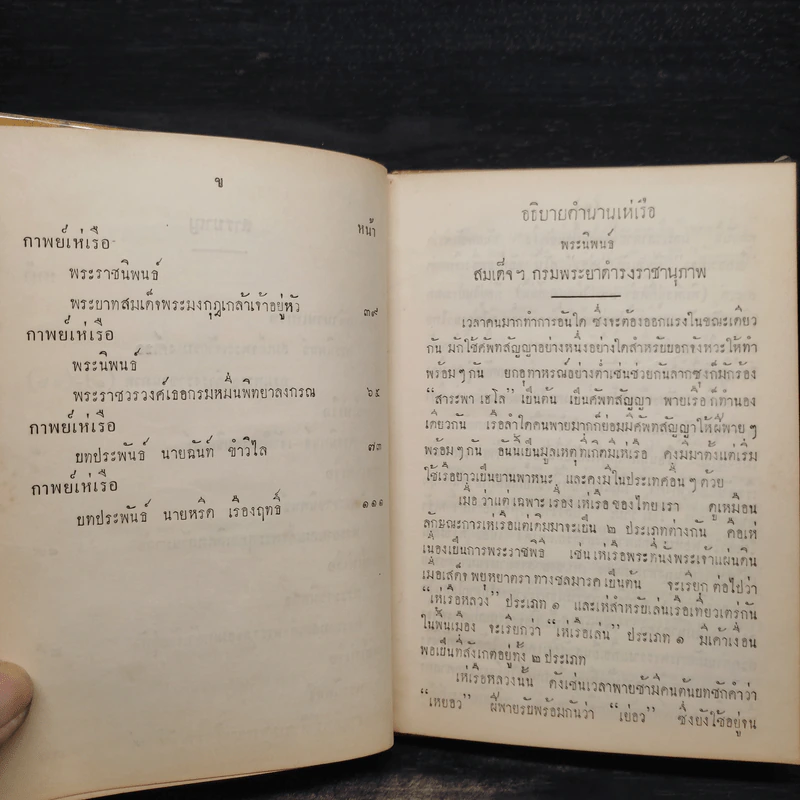 ข
หน้า
กาพย์เห่เรือ
พระราชนิพนธ์
พระบาทสมเด็จพระมงกุฎเกล้าเจ้าอยู่หัว ๓๙
กาพย์เห่เรือ
พระนิพนธ์
พระราชวรวงศ์เธอกรมหมื่นพิทยาลงกรณ ๖๕
กาพย์เห่เรือ
บทประพันธ์ นายฉันท์ ขำวิไล ๗๓
กาพย์เห่เรือ
บทประพันธ์ นายหรีด เรืองฤทธิ์ ๑๑๑
อธิบายตำนานเห่เรือ
พระนิพนธ์
สมเด็จฯ กรมพระยาดำรงราชานุภาพ
เวลาคนมากทำการอันใด ซึ่งจะต้องออกแรงในขณะเดียว
กัน มักใช้ศัพทสัญญาอย่างหนึ่งอย่างใดสำหรับบอกจังหวะให้ทำ
พร้อมๆ กัน ยกอุทาหรณ์อย่างต่ำเช่นช่วยกันลากซุงก็มักร้อง
“สาระพา เฮโล” เป็นต้น เป็นศัพทสัญญา พายเรือ ก็ทำนอง
เดียวกัน เรือลำใดคนพายมากก็ย่อมมีศัพทสัญญาให้ฝีพาย ๆ
พร้อมๆ กัน อันนี้เป็นมูลเหตุที่เกิดมีเห่เรือ คงมีมาตั้งแต่เริ่ม
ใช้เรือยาวเป็นยานพาหนะ และคงมีในประเทศอื่น ๆ ด้วย
เมื่อ ว่าแต่ เฉพาะ เรื่อง เห่เรือ ของ ไทย เรา ดูเหมือน
ลักษณะการเห่เรือแต่เดิมมาจะเป็น ๒ ประเภทต่างกัน คือเห่
เนื่องเป็นการพระราชพิธี เช่น เห่เรือพระที่นั่งพระเจ้าแผ่นดิน
เมื่อเสด็จ พยุหยาตรา ทางชลมารค เป็นต้น จะเรียก ต่อไปว่า
“เห่เรือหลวง” ประเภท ๑ และเห่สำหรับเล่นเรือเที่ยวเตร่กัน
ในพื้นเมือง จะเรียกว่า “เห่เรือเล่น” ประเภท ๑ มีเค้าเงื่อน
พอเป็นที่สังเกตอยู่ทั้ง ๒ ประเภท
เห่เรือหลวงนั้น ดังเช่นเวลาพายช้ามีคนต้นบทชักคำว่า
“เหยอว” ฝีพายรับพร้อมกันว่า “เย่อว” ซึ่งยังใช้อยู่จน